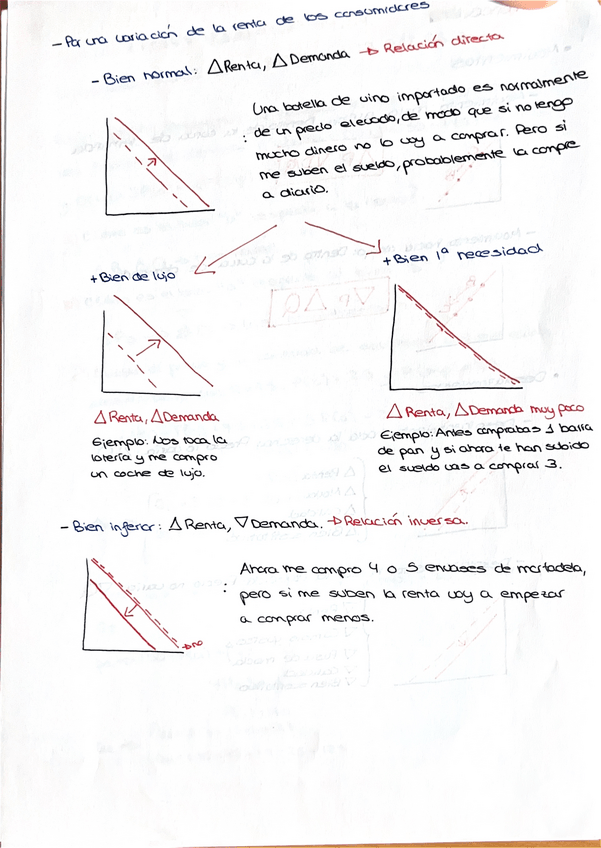 - Por una variación de la renta de los consumidores
- Bien normal: △Renta, △Demanda → Relación directa
Una botella de vino importado es normalmente
: de un precio elevado, de modo que si no tengo
mucho dinero no lo voy a comprar. Pero si
me suben el sueldo, probablemente la compre
a diario.
+ Bien de lujo
+ Bien 1ª necesidad
△Renta, △Demanda
Ejemplo: Nos toca la
lotería y me compro
un coche de lujo.
△Renta, △Demanda muy poco
Ejemplo: Antes comprabas 1 barra
de pan y si ahora te han subido
el sueldo vas a comprar 3.
- Bien inferior: △Renta, ▽Demanda. → Relación inversa.
Ahora me compro 4 o 5 envases de mortadela,
: pero si me suben la renta voy a empezar
a comprar menos.
→no